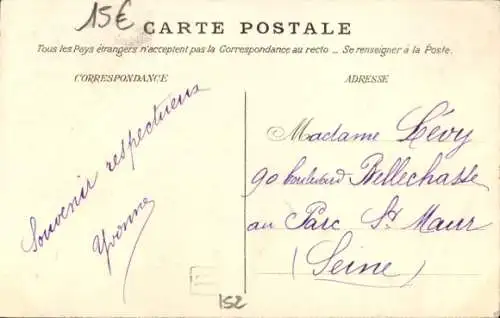 15€
CARTE POSTALE
Tous les Pays étrangers n'acceptent pas la Correspondance au recto _ Se renseigner à la Poste.
CORRESPONDANCE
ADRESSE
Souvenir respectueux
Yvonne
Madame Lévy
90 boulevard Bellechasse
au Parc St Maur
(Seine)
152